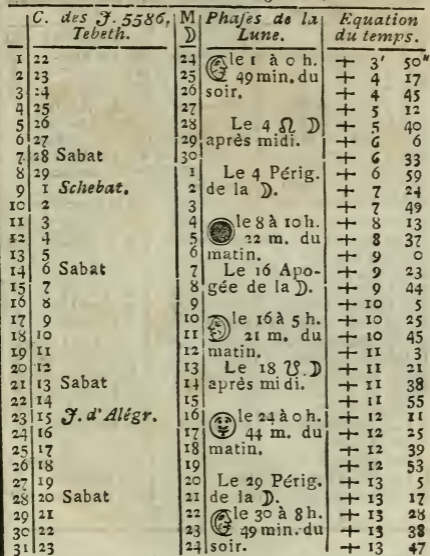 C. des J. 5586, M Phaſes de la Equation
Tebeth. ☽ Lune. du temps.
1 22 24 le 1 à 0 h. + 3' 50"
2 23 25 49 min. du + 4 17
3 24 26 soir. + 4 45
4 25 27 + 5 12
5 26 28 Le 4 ☊ ☽ + 5 40
6 27 29 après midi. + 6 6
7 28 Sabat 30 + 6 33
8 29 1 Le 4 Périg. + 6 59
9 1 Schebat. 2 de la ☽. + 7 24
10 2 3 + 7 49
11 3 4 le 8 à 10 h. + 8 13
12 4 5 22 m. du + 8 37
13 5 6 matin. + 9 0
14 6 Sabat 7 Le 16 Apo- + 9 23
15 7 8 gée de la ☽. + 9 44
16 8 9 + 10 5
17 9 10 le 16 à 5 h. + 10 25
18 10 11 21 m. du + 10 45
19 11 12 matin. + 11 3
20 12 13 Le 18 ☋ ☽ + 11 21
21 13 Sabat 14 après midi. + 11 38
22 14 15 + 11 55
23 15 J. d'Alégr. 16 le 24 à 0 h. + 12 11
24 16 17 44 m. du + 12 25
25 17 18 matin. + 12 39
26 18 19 + 12 53
27 19 20 Le 29 Périg. + 13 5
28 20 Sabat 21 de la ☽. + 13 17
29 21 22 le 30 à 8 h. + 13 28
30 22 23 49 min. du + 13 38
31 23 24 soir. + 13 47